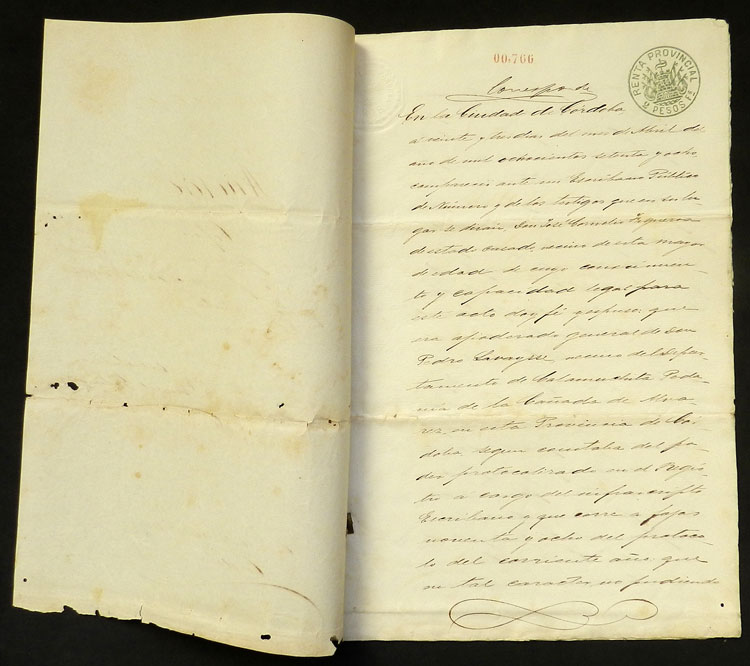 00,766
RENTA PROVINCIAL
2 PESOS Fs
Corresponde
En la Ciudad de Cordoba
á veinte y tres dias del mes de Abril del
año de mil ochocientos setenta y ocho,
compareció ante mi Escribano Público
de Número y de los testigos que en su lu-
gar se dirán, Don José Cornelio Figueroa
de estado casado, vecino de esta mayor
de edad de cuyo conocimien-
to y capacidad legal para
este acto doy fé y espuso: que
era apoderado general de Don
Pedro vecino del Depar-
tamento de Calamuchita Peda-
nia de la Cañada de Alva-
rez, en esta Provincia de Cor-
doba segun constaba del po-
der protocolizado en el Regis-
tro a cargo del infrascripto
Escribano y que corre a fojas
noventa y ocho del protoco-
lo del corriente año; que
en tal caracter, no pudiendo